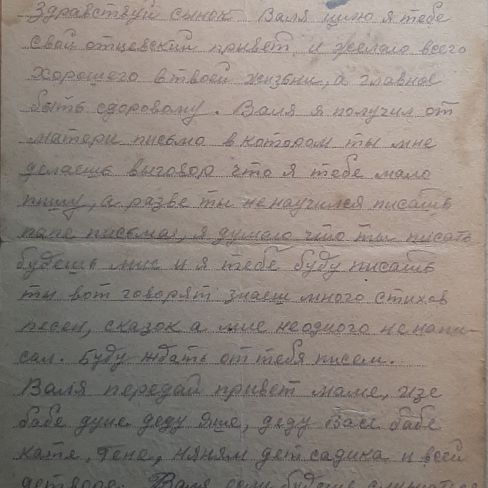 Здравствуй сынок Валя шлю я тебе
свой отцевский привет, и желаю всего
хорошего в твоей жизни, а главное
быть сдоровому. Валя я получил от
матери письмо в котором ты мне
делаешь выговор что я тебе мало
пишу, а разве ты ненаучился писать
папе письмая, я думаю что ты писать
будешь мне и я тебе буду писать
ты вот говорят знаеш много стихов
песен, сказок а мне неодного ненапи-
сал. Буду ждать от тебя писем.
Валя передай привет маме,
бабе дуне деду Яше, деду Васе бабе
кате, Гене, няням детсадика и всей
детворе. Валя если будешь